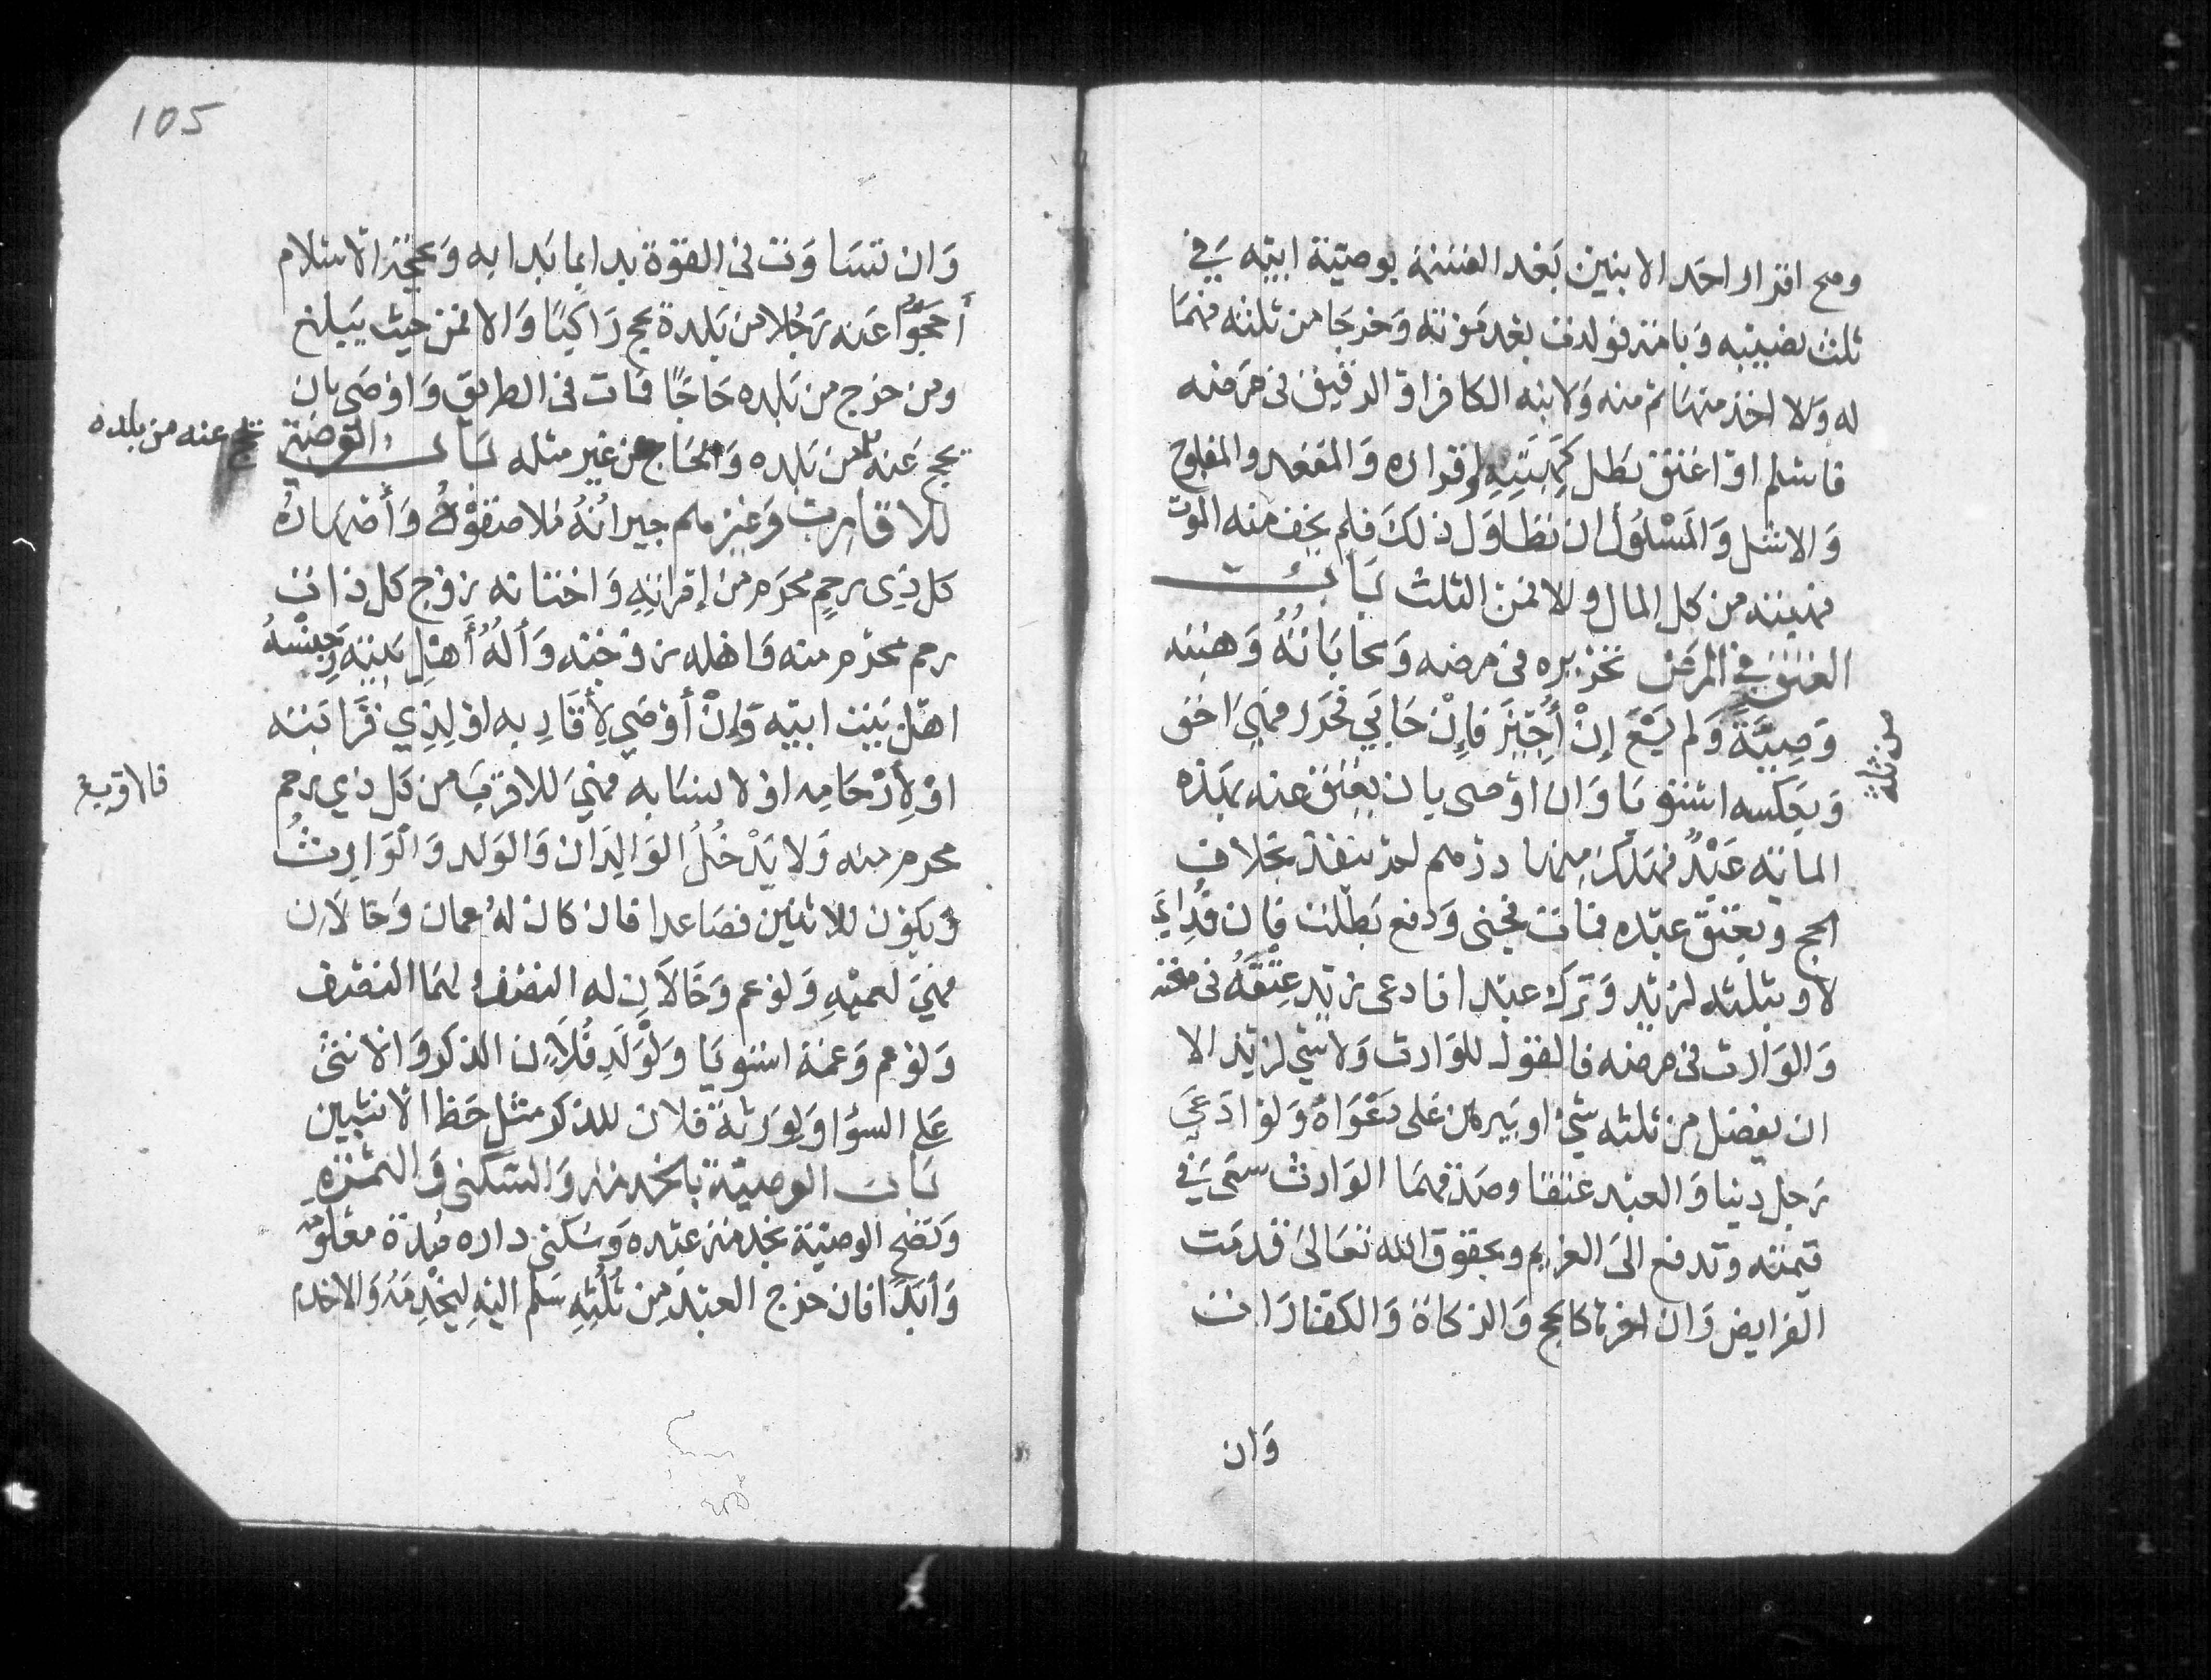 وصح اقرار احد الابنين بَعْد القسمة بوصيّة ابيّه في
ثلث نصيبه وَبامة فولدت بعْد مَوْته وَخرجَا من ثلثه فهمَا
له وَلا اخذ منهَا ثم منه وَلابنه الكافر او الرقيق في مرضه
فاسلم اوْ اعتق بَطل كَهِبَتِهِ واقراره وَالمقعد والمفلوج
وَالاشل وَالمَسْلُولُ ان تطَاوَل ذلكَ فلم يخف منه الموت
فهبته من كل المال والا فمن الثلث بَاب
العتق في المرض تحريره في مرضه وَمحابَاتُهُ وَهبته
وَصِيَّة وَلم يَسْعَ إنْ أُجِيْزَ فَإِنْ حَابَي فحَرر فهيَ احق
من ثلثه
وَبعَكسه استويَا وَان اوْصى بان يعْتق عنه بهَذه
المائة عَبْدٌ فهَلك مِنها درْهم لم تنفذ بخلاف
الحج وبعتق عبده فمات فجنى وَدفع بَطلت فان فُدِيَ
لا وبثلثه لزيد وَترك عبدا فادعى زيد عِتْقَهُ في صحته
وَالوَارث في مرضه فالقول للوَارث وَلا شي لزيد الا
ان يفضل من ثلثه شي او يَبرهن عَلى دَعْوَاهُ وَلوْ ادَعَي
رَجل دينا وَالعبْد عتقا وصدقهمَا الوَارث سعَى في
قيمته وتدفع الىَ الغريم وبحقوق الله تعَالىَ قدمَت
الفرايض وَان اخرهَا كالحج وَالزكاة وَالكفارَات
وَان
105
وَان تسَاوَت في القوّة بدا بما بَدا به وَبحجة الاسلام
أَحَجوّا عَنه رَجُلا من بَلده يحج رَاكبًا وَالا فمن حيث يَبلغ
ومن خرج من بَلده حَاجًا فمَات في الطريق وَاوْصَى بان
يحج عَنه من بَلده وَالحَاج عن غير مثله بَاب الوصية
يحج عنه من بلده
للاقارب وَغيرهم جيرانُهُ مُلاصقوْهُ وَأصْهَارُهُ
كل ذِى رحِمٍ محرَم من إمْرَاتِهِ وَاختانه زوْج كل ذات
رحم محرْم منه وَاهله زوْجَته وَألُهُ أَهْلُ بَيْتِه وَجِنْسُهُ
اهْل بَيْت ابيْه وَإنْ أوْصَى لِأَقَارِبه اوْ لِذِي قَرَابَته
اوْ لِأرْحَامِه اوْ لانسَابه فهيَ للاقرَب من كل ذي رحم
فالاقرب
محرم منه وَلا يَدْخُلُ الوَالِدَان وَالوَلد وَالوَارِثُ
وَيكوْن للاثنين فصَاعدا فان كان لهُ عمان وَخالَان
فهيَ لعميْهِ وَلوْ عم وَخَالَانِ له النصْف وَلهمَا النصْف
وَلوْ عم وَعمة استويَا وَلِوَلَدِ فُلَانٍ الذكر وَالانثىَ
عَلى السوَا وَلِوَرثَة فلان للذكر مثل حَظ الانثيين
بَاب الوصيّة بالخدمة وَالسكنى وَالثمرَة
وَتصَح الوصيّة بخدمَة عبْده وَسكنى داره مُدة معْلُومَة
وَأبَدًا فان خرج العبْد مِن ثُلُثِهِ سَلم اليْهِ لِيَخْدِمَهُ وَالا خدم